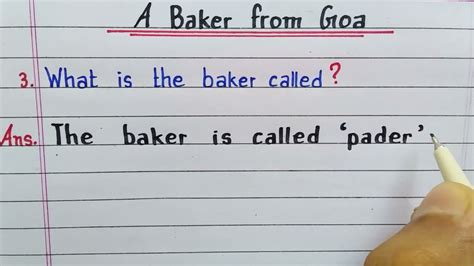 A Baker from Goa
3. What is the baker called?
Ans. The baker is called 'pader'